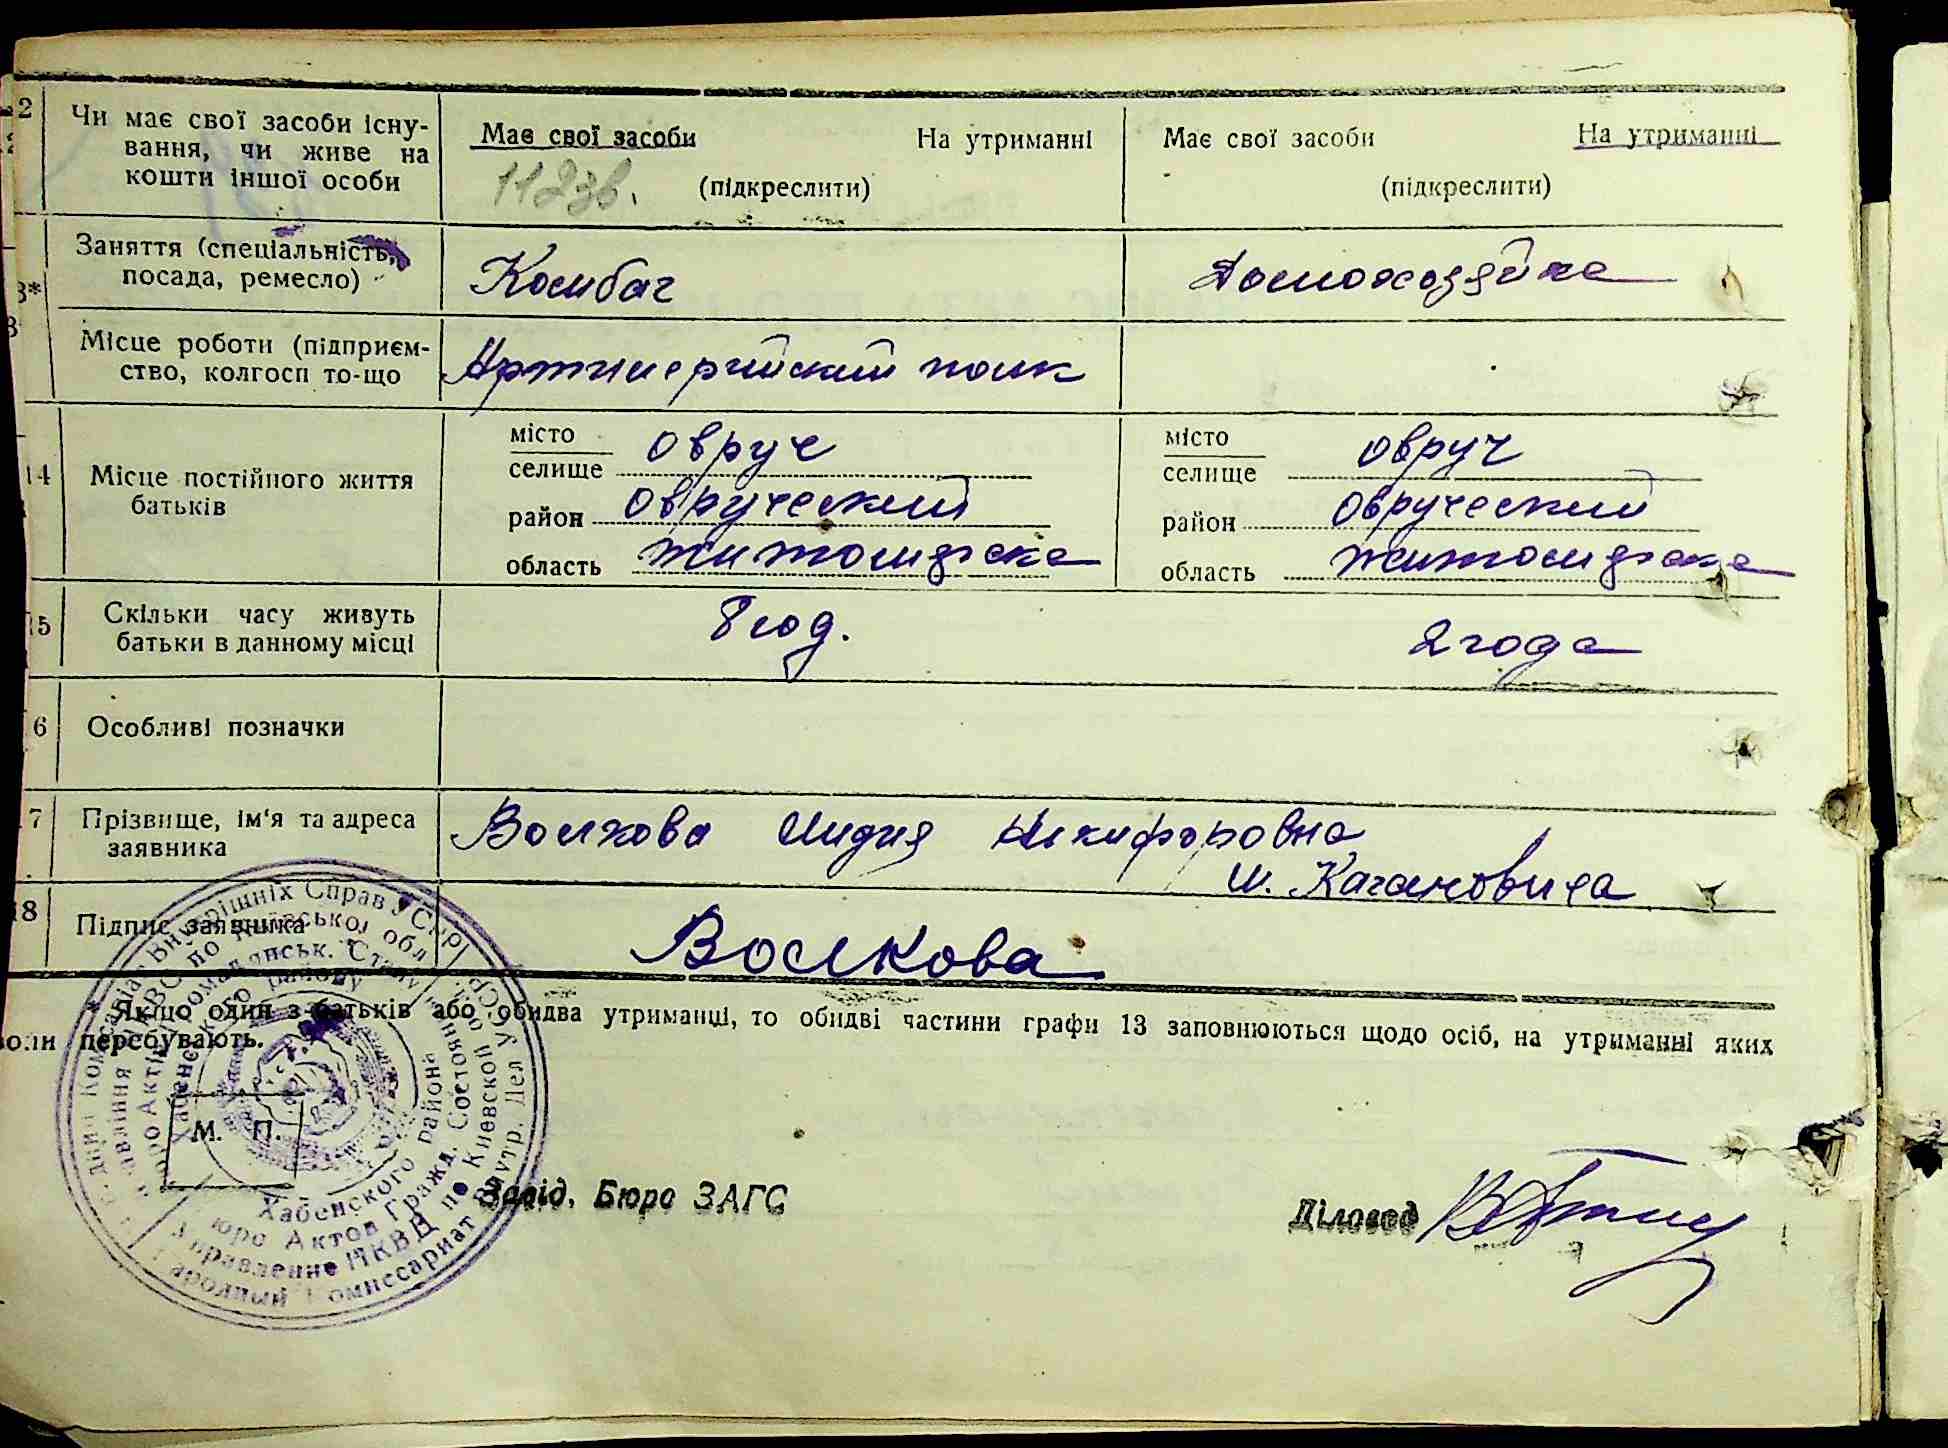 12 Чи має свої засоби існу-
вання, чи живе на
кошти іншої особи
Має свої засоби На утриманні
(підкреслити)
Має свої засоби На утриманні
(підкреслити)
Заняття (спеціальність,
посада, ремесло)
Комбат
Домохозяйка
13*
Місце роботи (підприєм-
ство, колгосп то-що
Артилерийский полк
14 Місце постійного життя
батьків
місто Овруч
селище
район Овруческий
область Житомирска
місто Овруч
селище
район Овруческий
область Житомирска
15 Скільки часу живуть
батьки в данному місці
8 год.
2 года
16 Особливі позначки
17 Прізвище, ім'я та адреса
заявника
Волкова Лидия Никифоровна
м. Кагановича
18 Підпис заявника
Волкова
* Якщо один з батьків або обидва утриманці, то обидві частини графи 13 заповнюються щодо осіб, на утриманні яких
вони перебувають.
М. П.
Завід. Бюро ЗАГС
Діловод
Внутрішніх Справ УСРР
по Київській обл.
Хабенского района
Бюро Актов Гражд. Состояния
Управление НКВД по Киевской обл.
Народный Комиссариат Внутр. Дел УССР